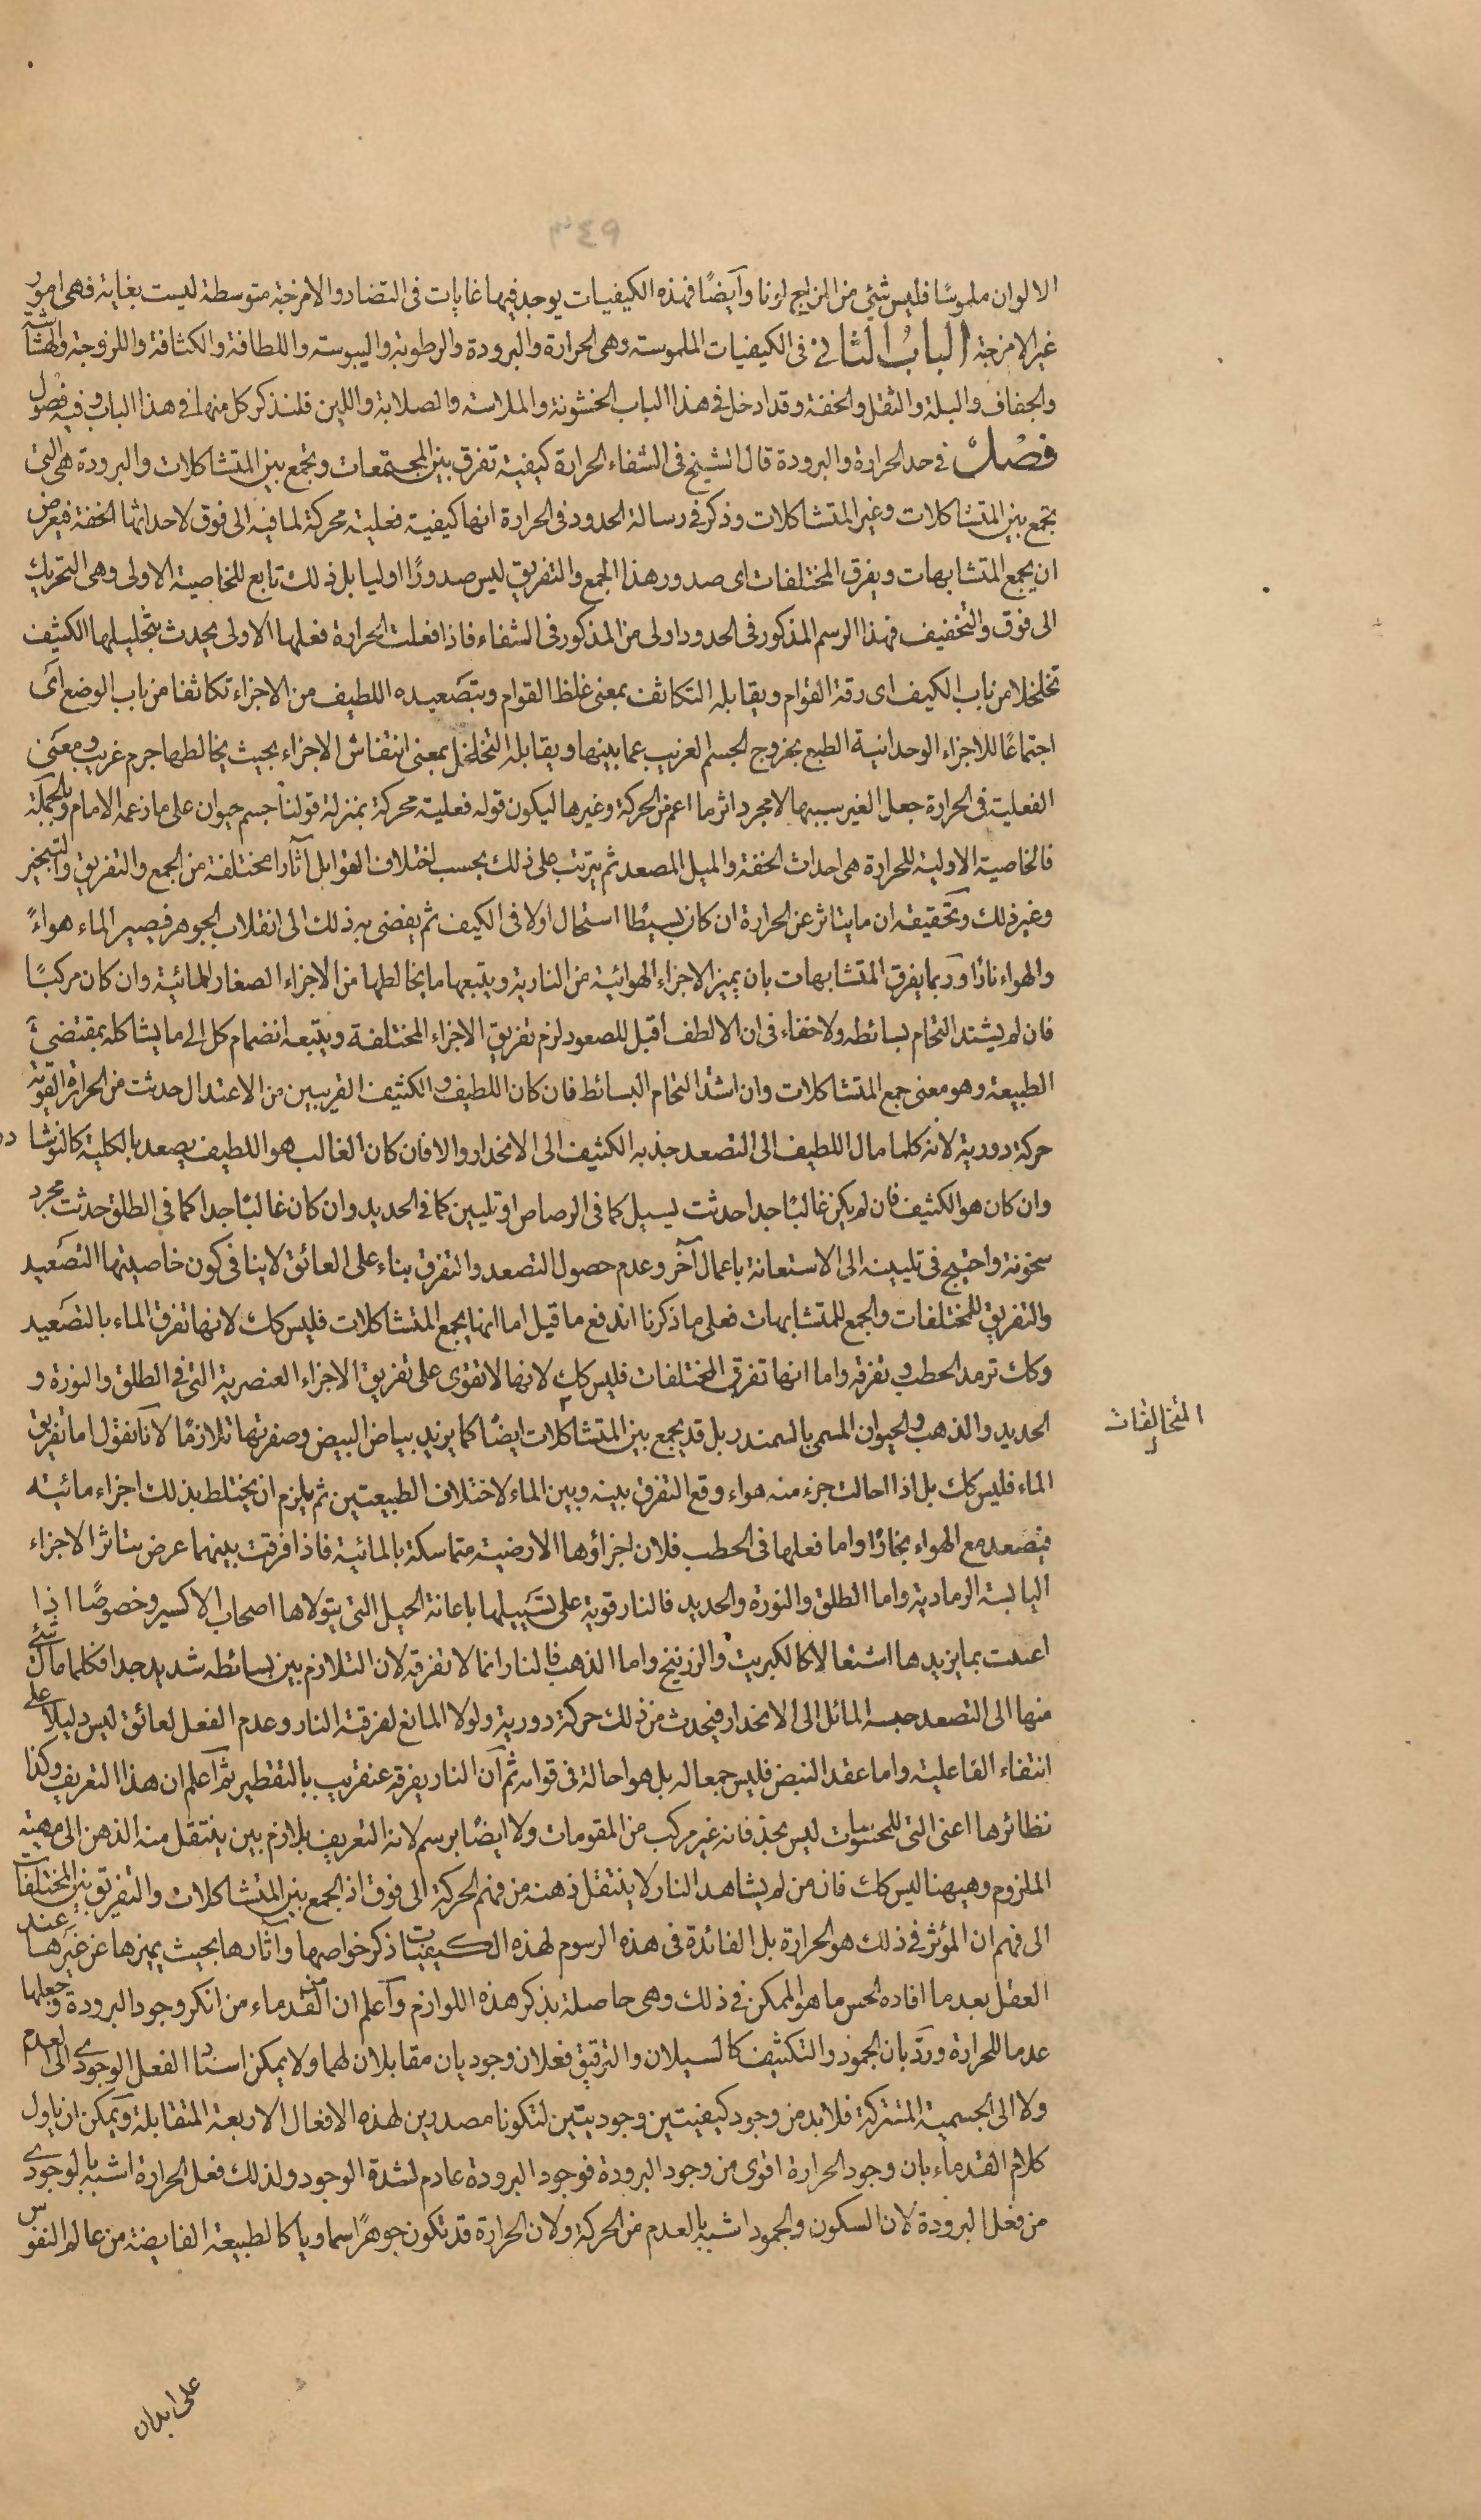 ٣٤٩
الالوان ملموسًا فليس شئ من المزاج لونا وآيضًا فهذه الكيفيات يوجد فيها غايات فى التضاد والامزجة متوسطة ليست بغاية فهى امور
غير الامزجة الباب الثانى فى الكيفيات الملموسة وهى الحرارة والبرودة والرطوبة واليبوسة واللطافة والكثافة واللزوجة والهشاشة
والجفاف والبلة والثقل والخفة وقد ادخل فى هذا الباب الخشونة والملاسة والصلابة واللين فلنذكر كل منها فى هذا الباب وفيه فصول
فصل فى حد الحرارة والبرودة قال الشيخ فى الشفاء الحرارة كيفية تفرق بين المجتمعات وتجمع بين المتشاكلات والبرودة هى التى
تجمع بين المتشاكلات وغير المتشاكلات وذكر فى رسالة الحدود فى الحرارة انها كيفية فعلية محركة لما فيه الى فوق لاحداثها الخفة فيعرض
ان يجمع المتشابهات ويفرق المختلفات اى صدور هذا الجمع والتفريق ليس صدورًا اوليا بل ذلك تابع للخاصية الاولى وهى التحريك
الى فوق والتخفيف فهذا الرسم المذكور فى الحدود اولى من المذكور فى الشفاء فاذا فعلت الحرارة فعلها الاولى يحدث بتحليلها الكثيف
تخلخلا من باب الكيف اى رقة القوام ويقابله التكاثف بمعنى غلظ القوام وبتصعيده اللطيف من الاجزاء تكاثفا من باب الوضع اى
اجتماعًا للاجزاء الوحدانية الطبع بخروج الجسم الغريب عما بينها ويقابله التخلخل بمعنى انتفاش الاجزاء بحيث يخالطها جرم غريب ومعنى
الفعلية فى الحرارة جعل الغير سببها لا مجرد اثر ما اعم من الحركة وغيرها ليكون قوله فعلية محركة بمنزلة قولنا جسم حيوان على ما زعمه الامام وبالجملة
فالخاصية الاولية للحرارة هى احداث الخفة والميل المصعد ثم يترتب على ذلك بحسب اختلاف القوابل آثارا مختلفة من الجمع والتفريق والتبخير
وغير ذلك وتحقيقه ان ما يتاثر عن الحرارة ان كان بسيطا استحال اولا فى الكيف ثم يفضى به ذلك الى انقلاب الجوهر فيصير الماء هواءً
والهواء نارًا وربما يفرق المتشابهات بان يميز الاجزاء الهوائية من النارية ويتبعها ما يخالطها من الاجزاء الصغار المائية وان كان مركبًا
فان لم يشتد التحام بسائطه ولا خفاء فى ان الالطف اقبل للصعود لزم تفريق الاجزاء المختلفة ويتبعه انضمام كل الى ما يشاكله بمقتضى
الطبيعة وهو معنى جمع المتشاكلات وان اشتد التحام البسائط فان كان اللطيف والكثيف القريبين من الاعتدال حدثت من الحرارة القوية
حركة دورية لانه كلما مال اللطيف الى التصعد جذبه الكثيف الى الانحدار والا فان كان الغالب هو اللطيف يصعد بالكلية كالنوشادر
وان كان هو الكثيف فان لم يكن غالبًا جدا حدثت لسيل كما فى الرصاص او تليين كما فى الحديد وان كان غالبًا جدا كما فى الطلق حدثت مجرد
سخونة واحتيج فى تليينه الى الاستعانة باعمال آخر وعدم حصول التصعد والتفرق بناء على العائق لا ينافى كون خاصيتها التصعيد
والتفريق للمختلفات والجمع للمتشابهات فعلى ما ذكرنا اندفع ما قيل اما انها يجمع المتشاكلات فليس كك لانها تفرق الماء بالتصعيد
وكك ترمد الحطب وتفرقه واما انها تفرق المختلفات فليس كك لانها لا تقوى على تفريق الاجزاء العنصرية التى فى الطلق والنورة و
الحديد والذهب والحيوان المسمى بالسمندر بل قد يجمع بين المتشاكلات ايضًا كما يزيد بياض البيض وصفرتها تلازمًا لانا نقول اما تفريق
المتخالفات
الماء فليس كك بل اذا احالت جزء منه هواء وقع التفرق بينه وبين الماء لاختلاف الطبيعتين ثم يلزم ان يختلط بذلك اجزاء مائية
فيصعد مع الهواء بخارًا واما فعلها فى الحطب فلان اجزاؤها الارضية متماسكة بالمائية فاذا فرقت بينهما عرض تناثر الاجزاء
اليابسة الرمادية واما الطلق والنورة والحديد فالنار قوية على تسييلها باعانة الحيل التى يتولاها اصحاب الاكسير وخصوصًا اذا
اعينت بما يزيدها اشتعالا كالكبريت والزرنيخ واما الذهب فالنار انما لا تفرقه لان التلازم بين بسائطه شديد جدا فكلما مال شئ
منها الى التصعد حبسه المائل الى الانحدار فيحدث من ذلك حركة دورية ولولا المانع لفرقته النار وعدم الفعل لعائق ليس دليلا على
انتفاء الفاعلية واما عقد البيض فليس جمعا له بل هو احالة فى قوامه ثم ان النار يفرقه عنقريب بالتقطير ثم اعلم ان هذا التعريف وكذا
نظائرها اعنى التى للمحسوسات ليس بحد فانه غير مركب من المقومات ولا ايضًا برسم لانه التعريف بلازم بين ينتقل منه الذهن الى مهية
الملزوم وهيهنا ليس كك فان من لم يشاهد النار لا ينتقل ذهنه من فهم الحركة الى فوق اذ الجمع بين المتشاكلات والتفريق بين المختلفات
الى فهم ان المؤثر فى ذلك هو الحرارة بل الفائدة فى هذه الرسوم لهذه الكيفيات ذكر خواصها وآثارها بحيث يميزها عن غيرها عند
العقل بعد ما افاده الحس ما هو الممكن فى ذلك وهى حاصلة بذكر هذه اللوازم وآعلم ان من القدماء من انكر وجود البرودة وجعلها
عدما للحرارة وردّ بان الجمود والتكثيف كالسيلان والترقيق فعلان وجوديان مقابلان لهما ولا يمكن اسناد الفعل الوجودى الى العدم
ولا الى الجسمية المشتركة فلا بد من وجود كيفيتين وجوديتين لتكونا مصدرين لهذه الافعال الاربعة المتقابلة ويمكن ان ياول
كلام القدماء بان وجود الحرارة اقوى من وجود البرودة فوجود البرودة عادم لشدة الوجود ولذلك فعل الحرارة اشبه بالوجودى
من فعل البرودة لان السكون والجمود اشبه بالعدم من الحركة ولان الحرارة قد تكون جوهرًا سماويا كالطبيعة الفايضة من عالم النفوس
على ابدان